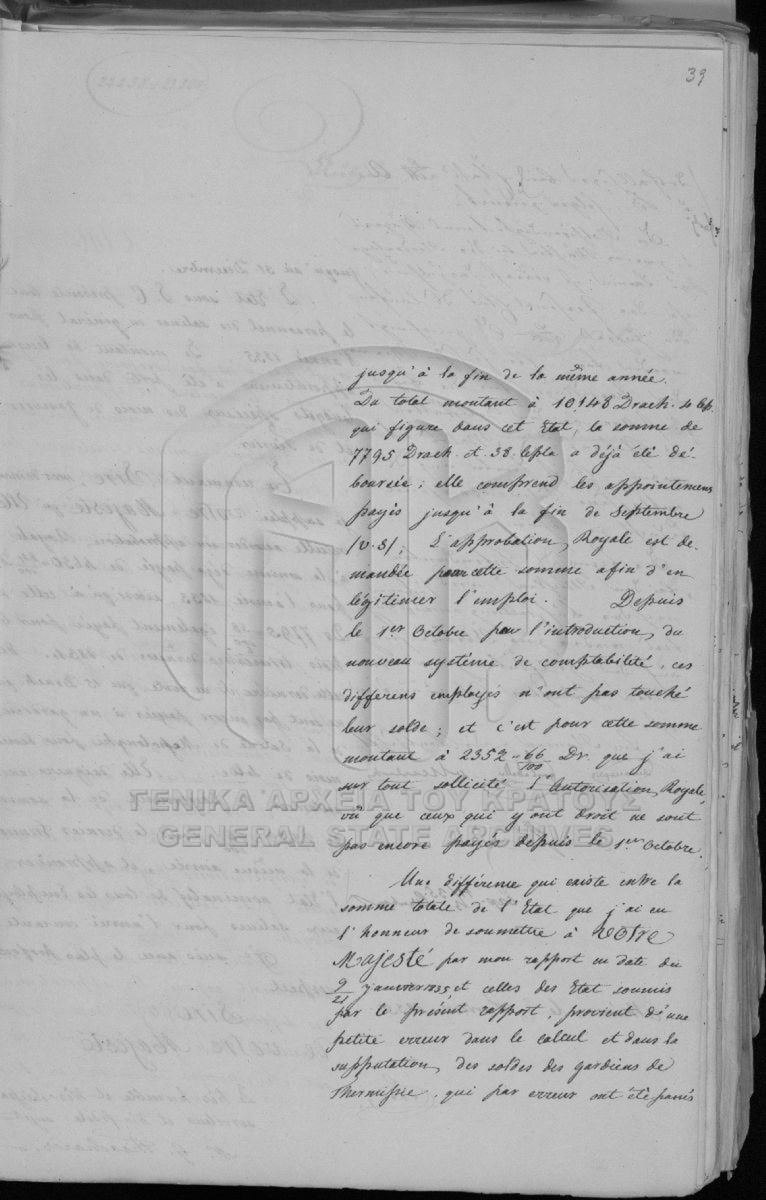 39
jusqu'à la fin de la même année.
Du total montant à 10148 Drach. 4 lep.
qui figure dans cet Etat, la somme de
7795 Drach. et 38 lepta a déjà été dé-
boursée; elle comprend les appointemens
payés jusqu'à la fin de Septembre
/v.s/; L'approbation Royale est de-
mandée pour cette somme afin d'en
légitimer l'emploi. Depuis
le 1er Octobre par l'introduction du
nouveau système de comptabilité, ces
differens employés n'ont pas touché
leur solde; et c'est pour cette somme
montant à 2352 66/100 Dr. que j'ai
sur tout sollicité l'Autorisation Royale,
vû que ceux qui y ont droit ne sont
pas encore payés depuis le 1er Octobre.
ΓΕΝΙΚΑ ΑΡΧΕΙΑ ΤΟΥ ΚΡΑΤΟΥΣ
GENERAL STATE ARCHIVES
Une différence qui existe entre la
somme totale de l'Etat que j'ai eu
l'honneur de soumettre à Votre
Majesté par mon rapport en date du
9/21 Janvier 1835, et celles des Etat soumis
par le présent rapport, provient d'une
petite erreur dans le calcul et dans la
supputation des soldes des gardiens de
Thermissie, qui par erreur ont été